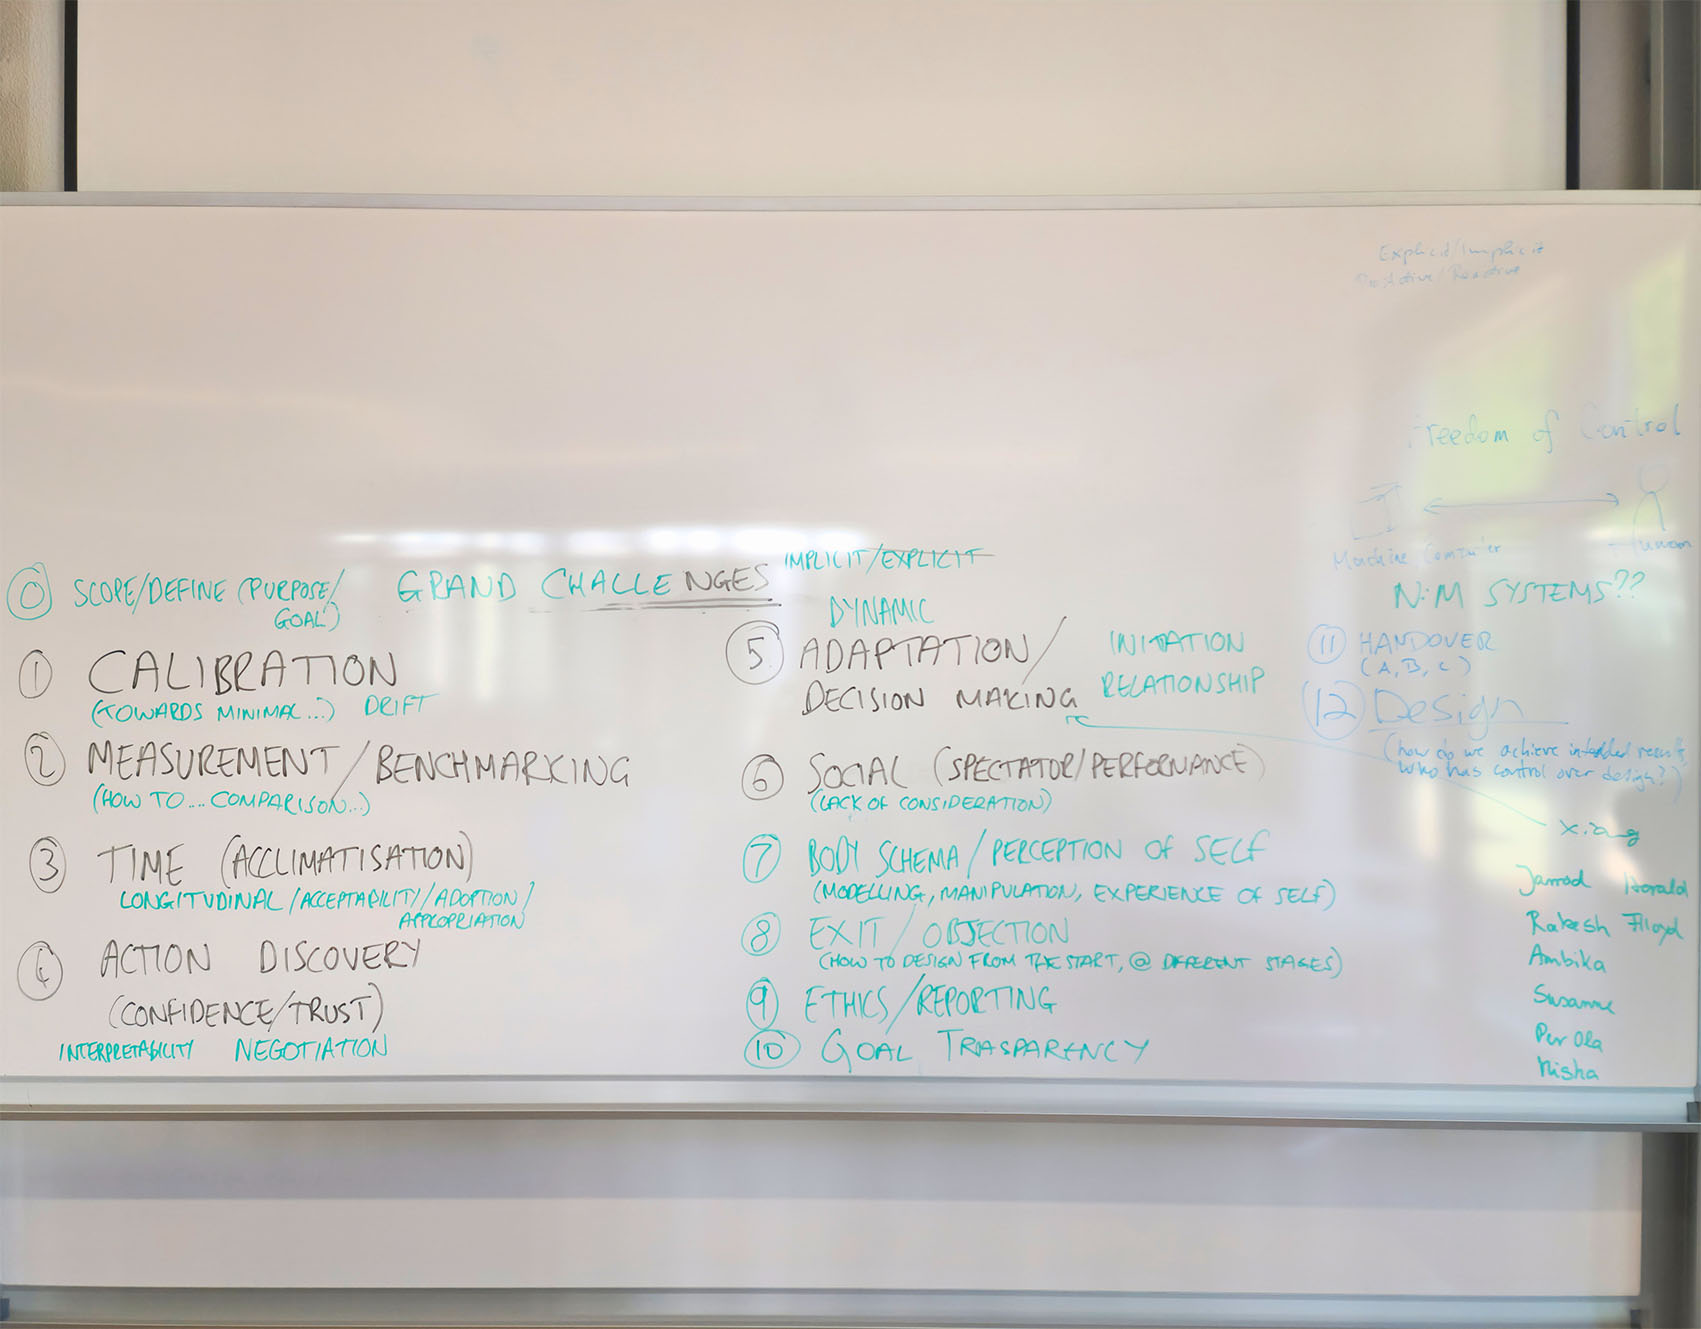 Explicit/Implicit
ProActive/Reactive
Freedom of Control
Machine Computer
Human
N:M SYSTEMS??
GRAND CHALLENGES
⓪ SCOPE/DEFINE (PURPOSE/
GOAL)
① CALIBRATION
(TOWARDS MINIMAL...) DRIFT
② MEASUREMENT/BENCHMARKING
(HOW TO.... COMPARISON...)
③ TIME (ACCLIMATISATION)
LONGITUDINAL/ACCEPTABILITY/ADOPTION/
APPROPRIATION
④ ACTION DISCOVERY
(CONFIDENCE/TRUST)
INTERPRETABILITY NEGOTIATION
IMPLICIT/EXPLICIT
DYNAMIC
⑤ ADAPTATION/
DECISION MAKING
INITIATION
RELATIONSHIP
⑥ SOCIAL (SPECTATOR/PERFORMANCE)
(LACK OF CONSIDERATION)
⑦ BODY SCHEMA/PERCEPTION OF SELF
(MODELLING, MANIPULATION, EXPERIENCE OF SELF)
⑧ EXIT/OBJECTION
(HOW TO DESIGN FROM THE START, @ DIFFERENT STAGES)
⑨ ETHICS/REPORTING
⑩ GOAL TRASPARENCY
⑪ HANDOVER
(A, B, C)
⑫ Design
(how do we achieve intended results,
who has control over design?)
Xiang
Jarrod Harald
Rakesh Floyd
Ambika
Susanne
Per Ola
Nisha